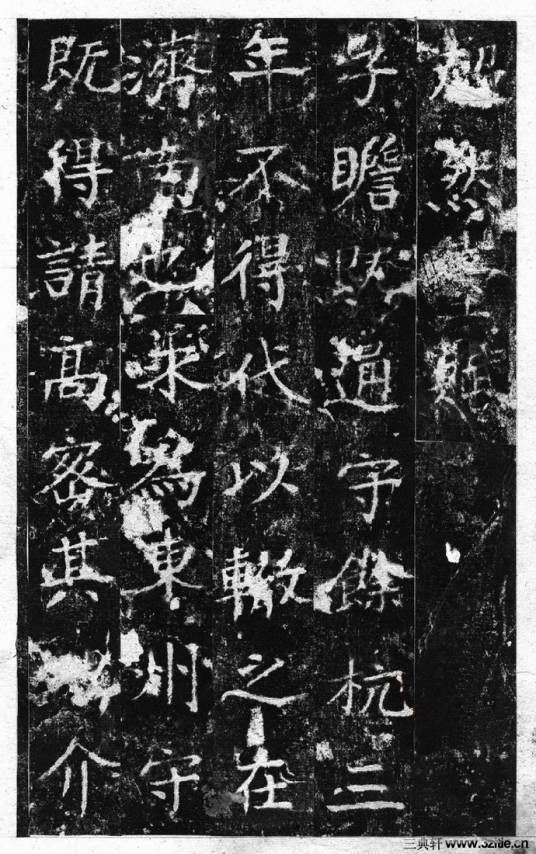 超然臺賦
子瞻既通守餘杭三
年不得代以轍之在
濟南也求為東州守
既得請高密其介
三典轩 www.3zitie.cn